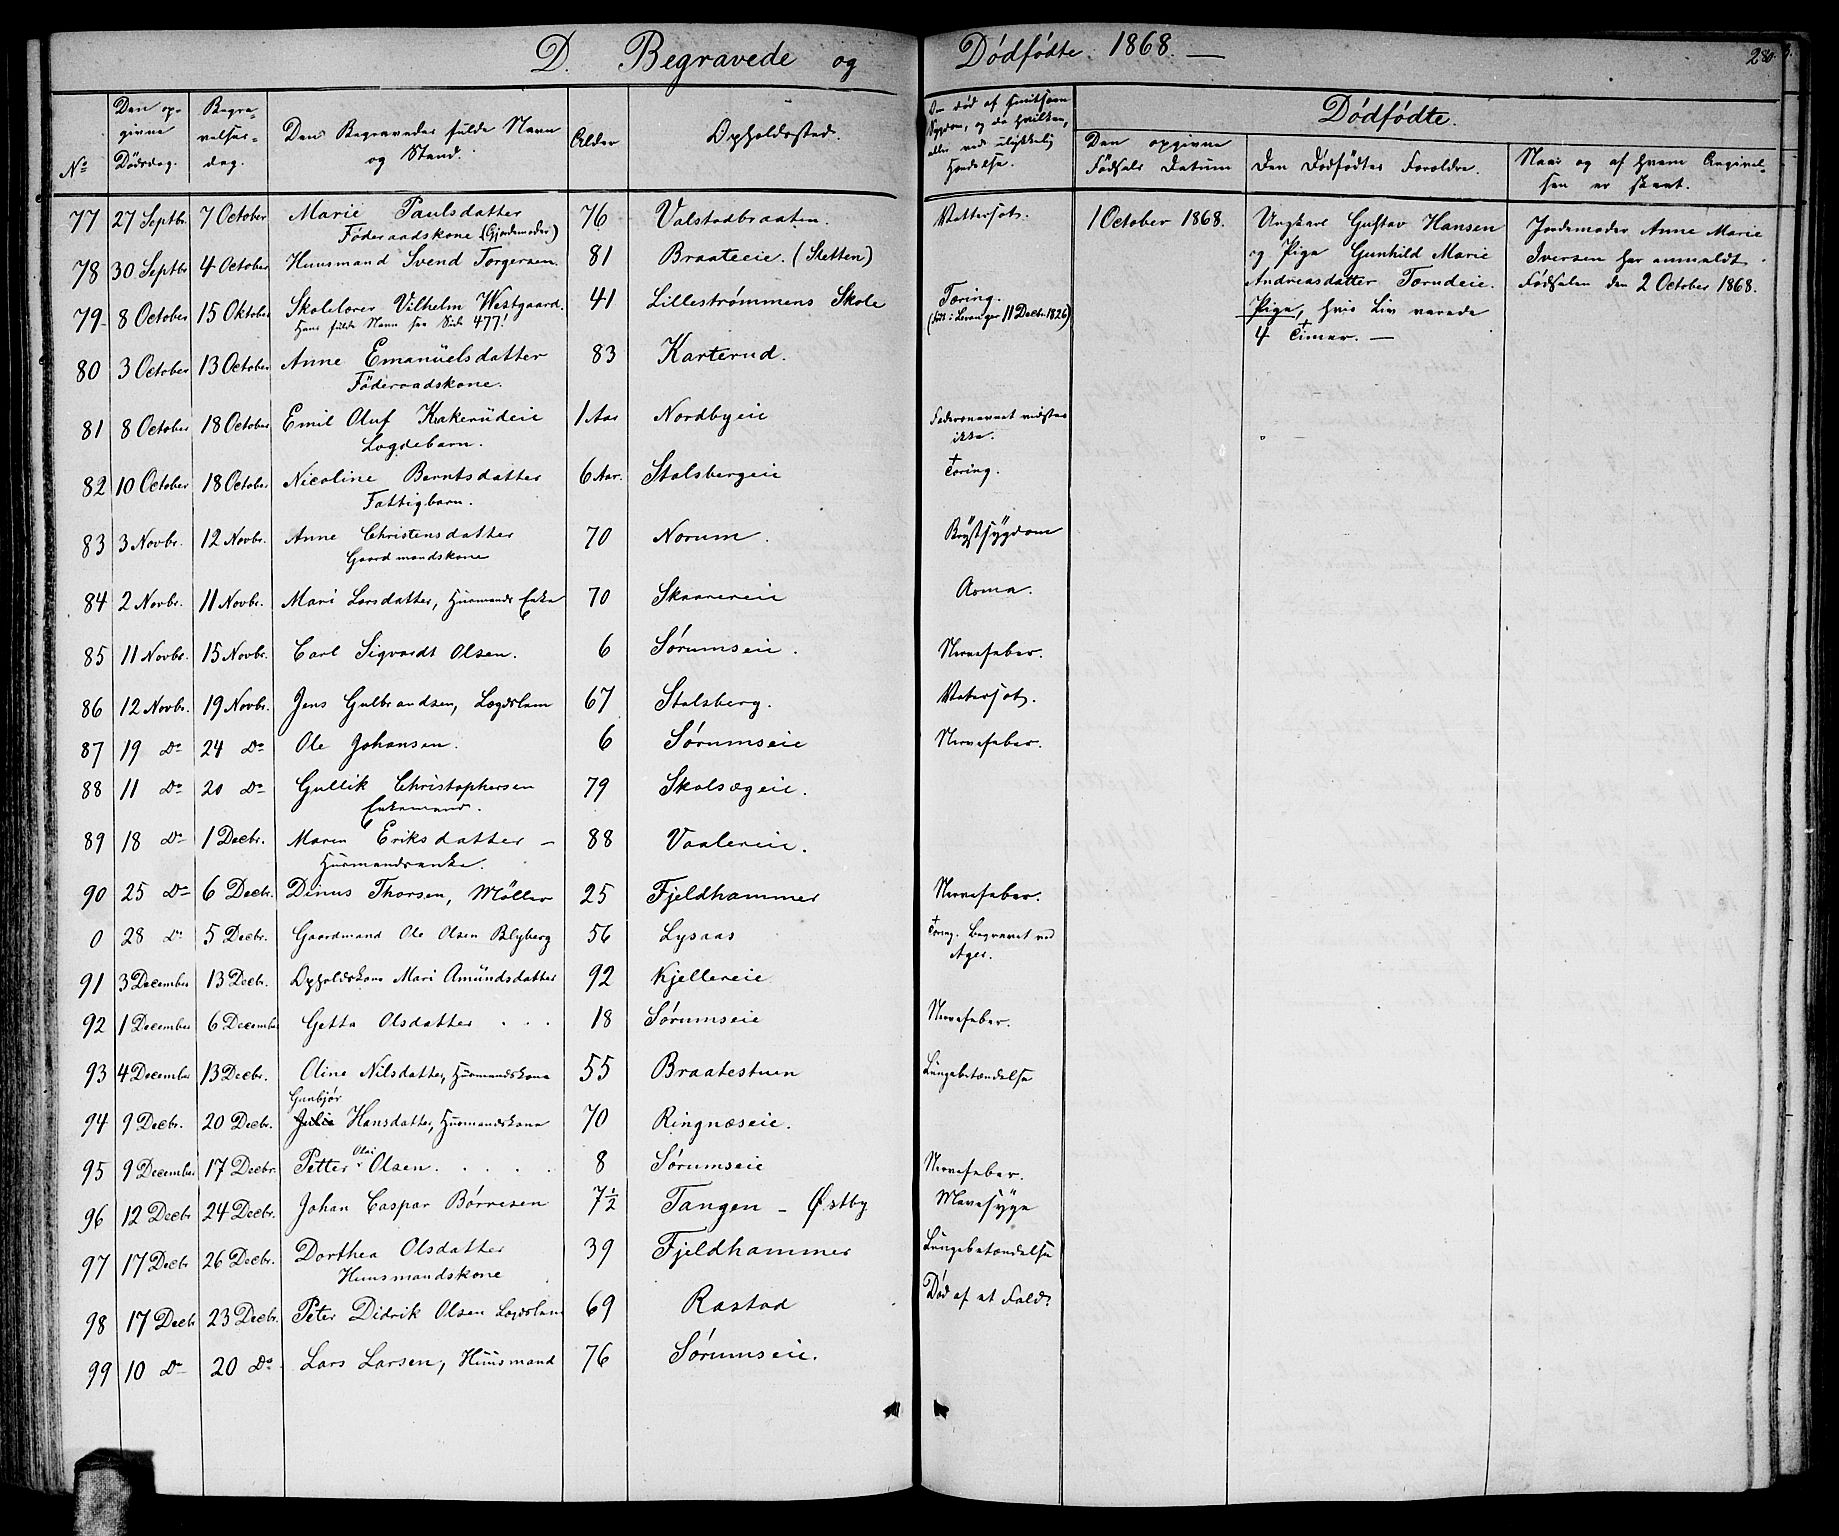 D. Begravede og Dødfødte. 1868. —
280.
No
Den op-
givne
Dødsdag.
Begra-
velses-
dag.
Den Begravedes fulde Navn
og Stand.
Alder
Opholdssted.
Om død af smitsom
Sygdom, og da hvilken,
eller ved ulykkelig
Hendelse.
Dødfødte.
Den opgivne
Fødsels Datum
Den Dødfødtes Forældre.
Naar og af hvem Angivel-
sen er skeet.
77 27 Septbr. 7 October Marie Paulsdatter 76 Valstadbraaten. Vattersot.
Föderaadskone (Gjordemoder)
78 30 Septbr 4 October Huusmand Svend Torgersen. 81 Braateeie. (Sletten)
79. 8 October 15 Oktober Skolelærer Vilhelm Westgaard. 41 Lillestrømmens Skole Tæring.
Hans fulde Navn see Side 477! (født i Levanger 11 Decbr. 1826)
80 3 October 13 October Anne Emanüelsdatter 83 Karterud.
Föderaadskone.
81 8 October 18 October Emil Oluf Krakerüdeie 1 Aar Nordbyeie Faderens navnet vidstes
Lægdebarn. ikke.
82 10 October 18 October Nicoline Berntsdatter 6 Aar. Stalsbergeie Tæring.
Fattigbarn.
83 3 Novbr. 12 Novbr. Anne Christensdatter 70 Norum. Brÿstsÿgdom
Gaardmandskone
84 2 Novbr. 11 Novbr. Mari Larsdatter, Huusmands Enke 70 Skaarereie Asma.
85 11 Novbr. 15 Novbr. Carl Sigvardt Olsen. 6 Sørumseie. Nervefeber.
86 12 Novbr. 19 Novbr. Jens Gulbrandsen, Lægdslem 67 Stalsberg. Vatersot.
87 19 Do 24 Do Ole Johansen. 6 Sørumseie Nervefeber.
88 11 Do 20 Do Gullik Christophersen 79 Skolsægeie.
Enkemand.
89 18 Do 1 Decbr. Maren Eriksdatter — 88 Vaalereie.
Huusmandsenke.
90 25 Do 6 Decbr. Dinus Thorsen, Möller 25 Fjeldhammer Nervefeber.
0 28 Do 5 Decbr. Gaardmand Ole Olsen Blyberg 56 Lysaas Tæring. Begravet ved
Ager.
91 3 December 13 Decbr. Opholdskone Mari Amündsdatter 92 Kjellereie
92 1 December 6 December Getta Olsdatter . . . 18 Sørumseie Nervefeber.
93 4 December 13 Decbr. Oline Nilsdatter, Huusmandskone 55 Braatestuen Lüngebetændelse
Gunbjör
94 9 Decbr. 20 Decbr. Julie Hansdatter, Huusmandskone 70 Ringnæseie.
Olai
95 9 December 17 Decbr. Petter Olsen. . . . . 8 Sørumseie Nervefeber.
96 12 Decbr 24 Decbr. Johan Caspar Börresen 7½ Tangen – Østby Mavesÿge
97 17 Decbr 26 Decbr. Dorthea Olsdatter 39 Fjeldhammer Lüngebetændelse
Huusmandskone
98 17 Decbr 23 Decbr. Peter Didrik Olsen Lægdslem 69 Rastad Död af et Fald.
99 10 Do 20 Do. Lars Larsen, Hüüsmand 76 Sørumseie.
1 October 1868. Ungkarl Gustav Hansen Jordemoder Anne Marie
og Pige Gunhild Marie Iversen har anmeldt
Andreasdatter Tærudeie. Fødselen den 2 October 1868.
Pige, hvis Liv varede
4 Timer. —